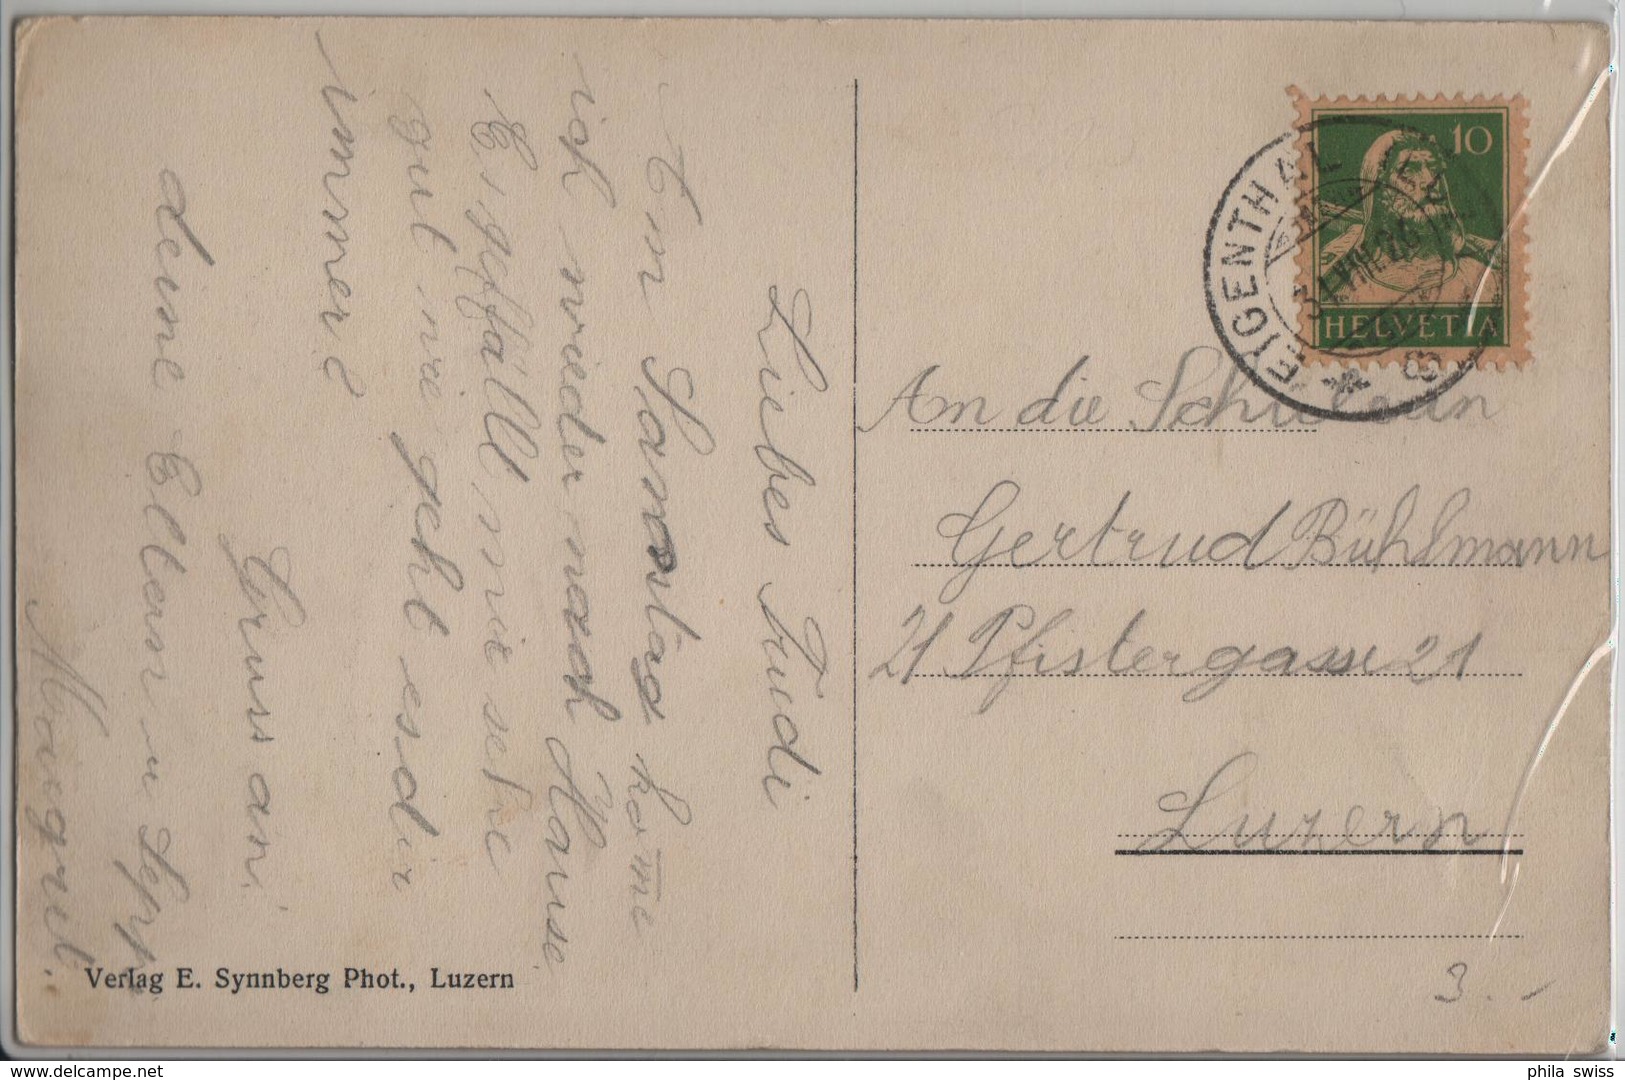 Liebes Trudi
Am Samstag kome
ich wieder nach Hause.
Es gefällt mir sehr
gut wie geht es dir
immer?
Gruss an
deine Eltern u. Sepp.
Margrit.
Verlag E. Synnberg Phot., Luzern
10
HELVETIA
EIGENTHAL
31.VIII.26
An die Schülerin
Gertrud Bühlmann
21 Pfistergasse 21
Luzern
3.-
phila swiss
delcampe.net